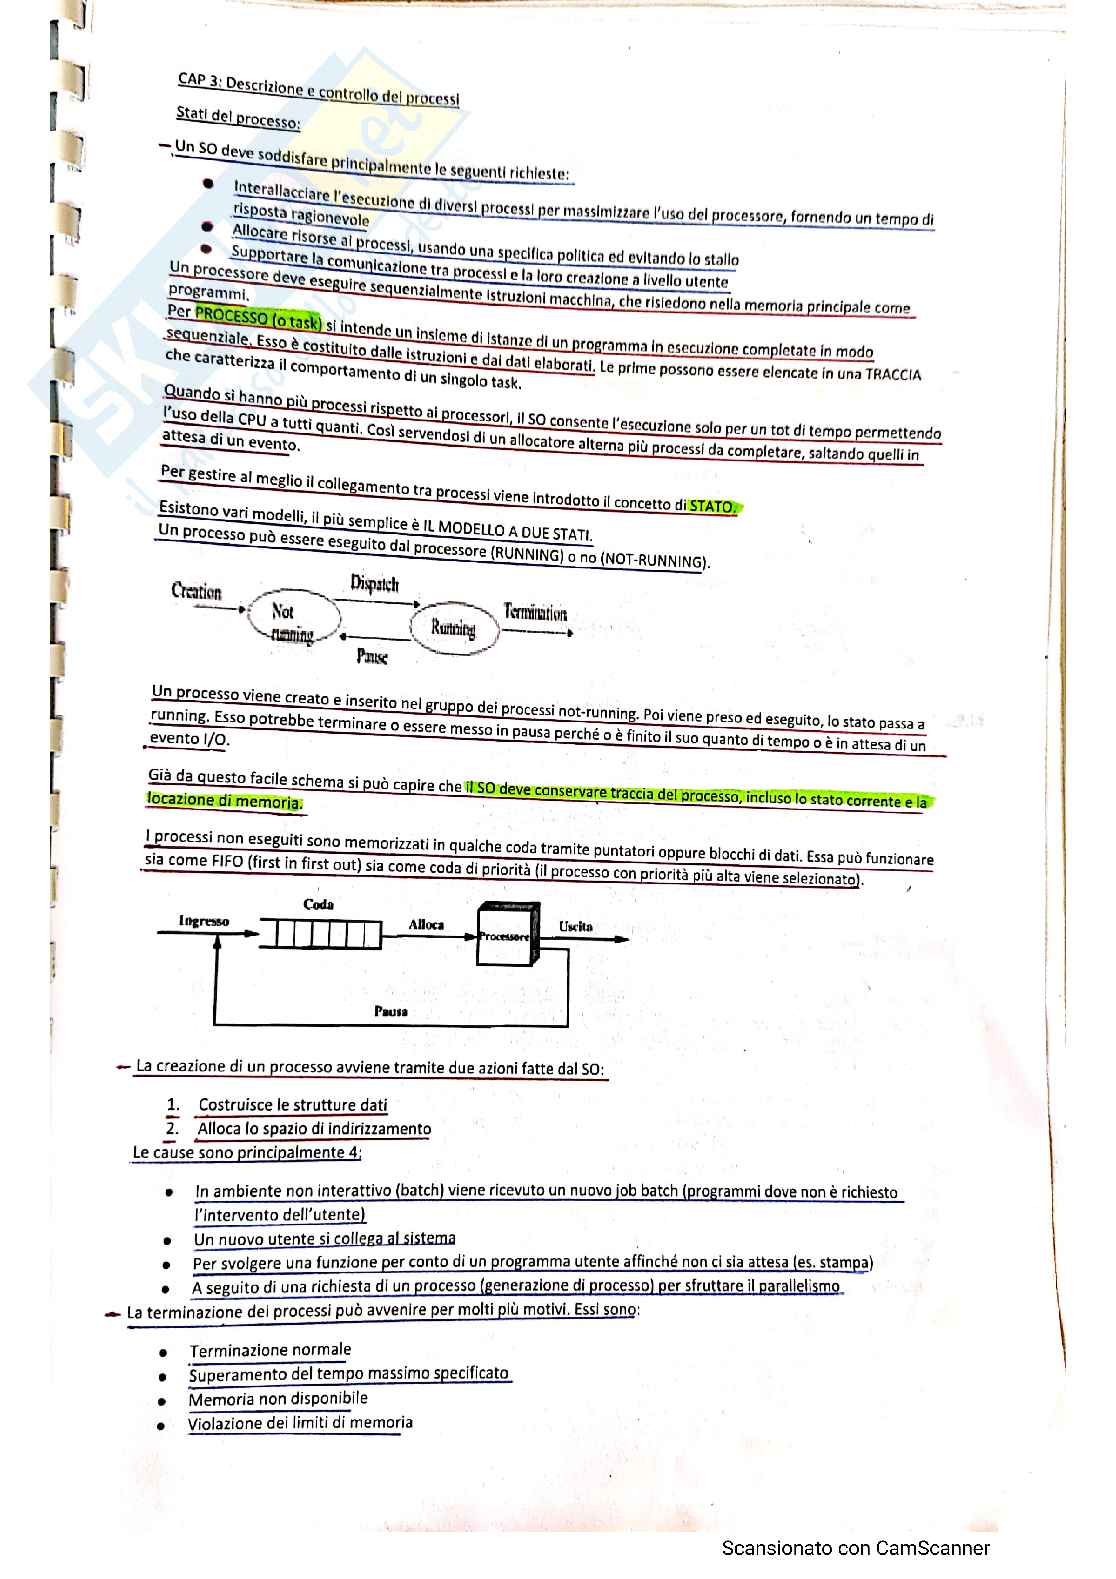 CAP 3: Descrizione e controllo dei processi
Stati del processo:
Un SO deve soddisfare principalmente le seguenti richieste:
● Interallacciare l'esecuzione di diversi processi per massimizzare l'uso del processore, fornendo un tempo di
risposta ragionevole
● Allocare risorse ai processi, usando una specifica politica ed evitando lo stallo
● Supportare la comunicazione tra processi e la loro creazione a livello utente
Un processore deve eseguire sequenzialmente istruzioni macchina, che risiedono nella memoria principale come
programmi.
Per PROCESSO (o task) si intende un insieme di istanze di un programma in esecuzione completate in modo
sequenziale. Esso è costituito dalle istruzioni e dai dati elaborati. Le prime possono essere elencate in una TRACCIA
che caratterizza il comportamento di un singolo task.
Quando si hanno più processi rispetto ai processori, il SO consente l'esecuzione solo per un tot di tempo permettendo
l'uso della CPU a tutti quanti. Così servendosi di un allocatore alterna più processi da completare, saltando quelli in
attesa di un evento.
Per gestire al meglio il collegamento tra processi viene introdotto il concetto di STATO.
Esistono vari modelli, il più semplice è IL MODELLO A DUE STATI.
Un processo può essere eseguito dal processore (RUNNING) o no (NOT-RUNNING).
Creation
Dispatch
Not
running
Running
Termination
Pause
Un processo viene creato e inserito nel gruppo dei processi not-running. Poi viene preso ed eseguito, lo stato passa a
running. Esso potrebbe terminare o essere messo in pausa perché o è finito il suo quanto di tempo o è in attesa di un
evento I/O.
Già da questo facile schema si può capire che il SO deve conservare traccia del processo, incluso lo stato corrente e la
locazione di memoria.
I processi non eseguiti sono memorizzati in qualche coda tramite puntatori oppure blocchi di dati. Essa può funzionare
sia come FIFO (first in first out) sia come coda di priorità (il processo con priorità più alta viene selezionato).
Coda
Ingresso
Alloca
Processore
Uscita
Pausa
La creazione di un processo avviene tramite due azioni fatte dal SO:
1. Costruisce le strutture dati
2. Alloca lo spazio di indirizzamento
Le cause sono principalmente 4:
● In ambiente non interattivo (batch) viene ricevuto un nuovo job batch (programmi dove non è richiesto
l'intervento dell'utente)
● Un nuovo utente si collega al sistema
● Per svolgere una funzione per conto di un programma utente affinché non ci sia attesa (es. stampa)
● A seguito di una richiesta di un processo (generazione di processo) per sfruttare il parallelismo
La terminazione dei processi può avvenire per molti più motivi. Essi sono:
● Terminazione normale
● Superamento del tempo massimo specificato
● Memoria non disponibile
● Violazione dei limiti di memoria
Scansionato con CamScanner